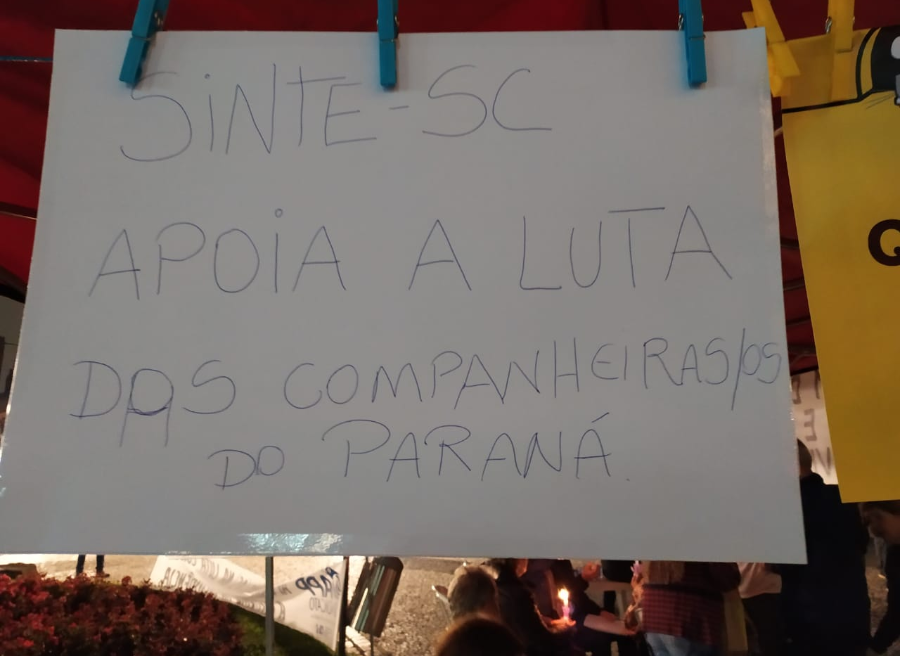 SiNTE-SC
APOiA A LUTA
DAS COMPANHEIRAS/OS
DO PARANÁ.
Q